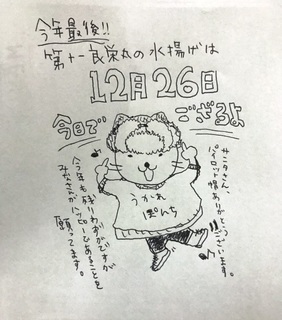 今年最後!!
第十一良栄丸の水揚げは
12月26日
今日で
ござるよ
サニタさん、
パイロット帽ありがとう
ございます。
うかれ
ぽんち
今年も残りわずかですが
みなさんがハッピーであることを
願ってます。